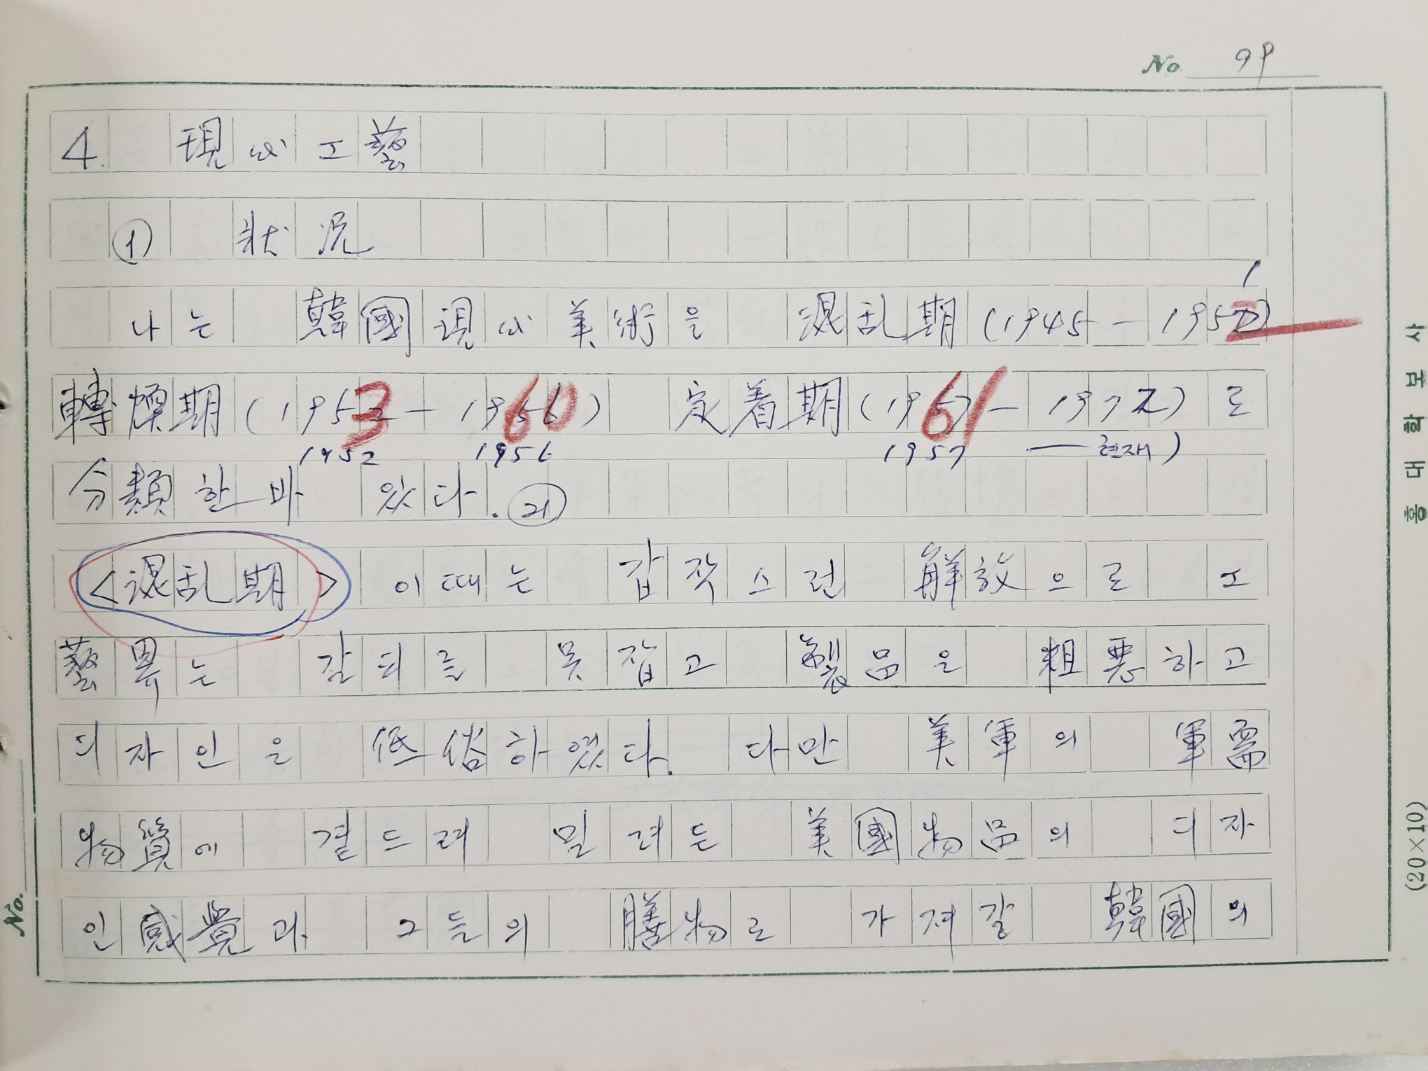 No. 99
4. 現代工藝
① 狀況
나는 韓國現代美術을 混乱期(1945 — 1952)
1
轉煥期(1953 — 1960) 定着期(1961 — 1977)로
1952 1956 1957 — 현재)
分類한바 있다. ㉑
<混乱期> 이때는 갑작스런 解放으로 工
藝界는 갈피를 못잡고 製品은 粗悪하고
디자인은 低俗하였다. 다만 美軍의 軍需
物質에 곁드려 밀려든 美國物品의 디자
인 感覺과 그들의 膳物로 가져갈 韓國의
No.
홍대학보사
(20×10)